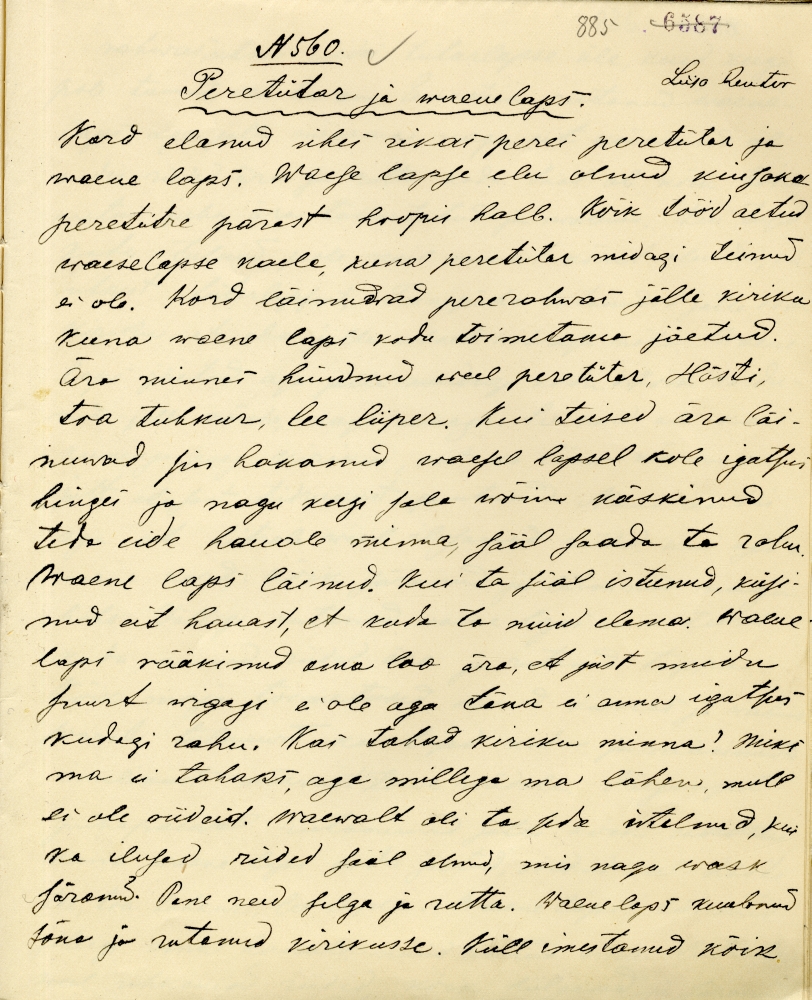 885 6587
N 560.
Liiso Reuter
Peretütar ja waene laps.
Kord elanud ühes rikas peres peretütar ja
waene laps. Waese lapse elu olnud kiusaka
peretütre pärast hoopis halb. Kõik tööd aetud
waeselapse kaela, kuna peretütar midagi teinud
ei ole. Kord läinudwad pererahwas jälle kiriku
kuna waene laps kodu toimetama jäetud.
Ära minnes hüüdnud weel peretütar, Hästi,
toa tuhkur, lee liiper. Kui teised ära läi-
nuwad siis hakanud waesel lapsel kole igatsus
hinges ja nagu keegi sala wõim käskinud
teda eide hauale minna, sääl saada ta rahu.
Waene laps läinud. Kui ta sääl istunud, küsi-
nud eit hauast, et kuda ta nüüd elama. Waene
laps rääkinud oma loo ära, et just muidu
suurt wigagi ei ole aga täna ei anna igatsus
kudagi rahu. Kas tahad kiriku minna? Miks
ma ei tahaks, aga millega ma lähen, mull
ei ole riideid. Waewalt oli ta seda ütelnud, kui
ka ilusad riided sääl olnud, mis nagu wask
säranud. Pane need selga ja rutta. Waene laps kuulanud
sõna ja rutanud kirikusse. Küll imestanud kõik